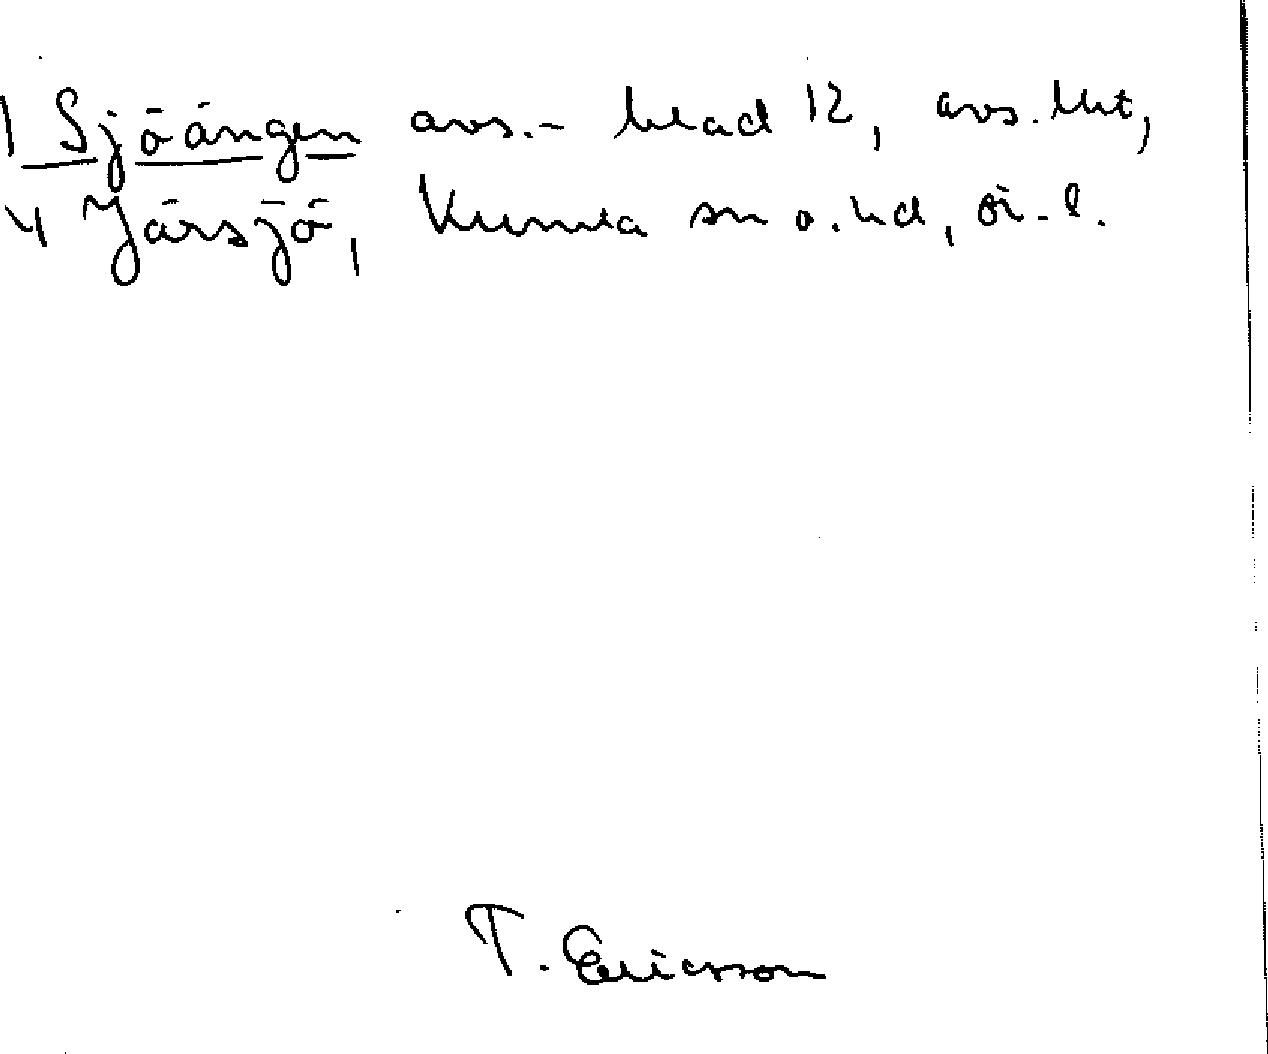 1 Sjöängen avs.- blad 12, avs. utt,
4 Järsjö, Kumla sn o. hd, ör. l.
T. Ericsson